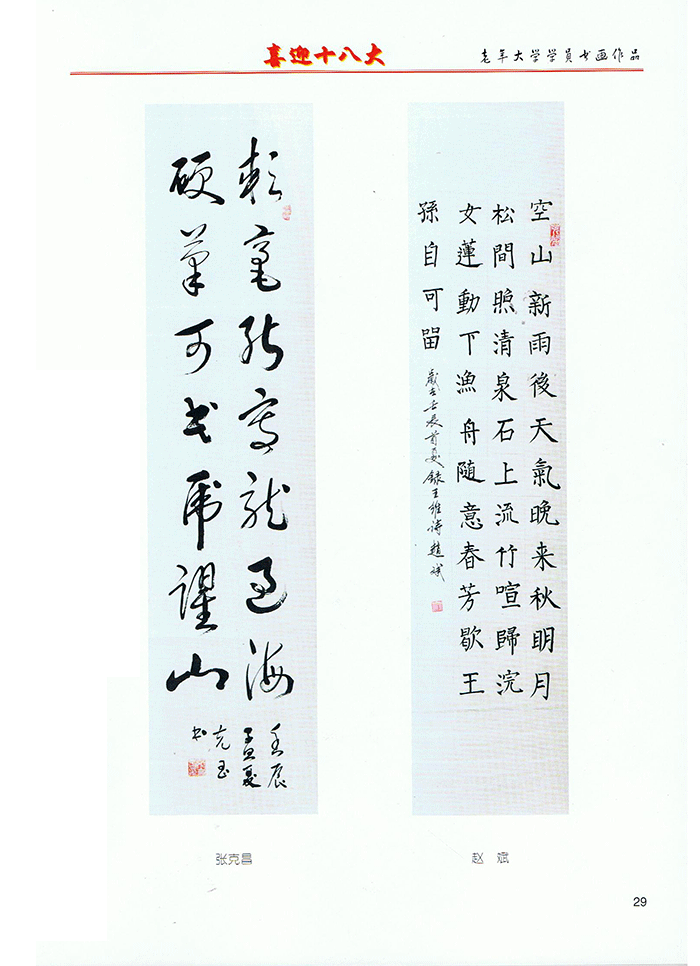 喜迎十八大
老年大学学员书画作品
軟毫能写龍過海
硬筆可书虎望山
壬辰
孟夏
克昌
书
空山新雨後天氣晚来秋明月
松間照清泉石上流竹喧歸浣
女蓮動下漁舟随意春芳歇王
孫自可留
歲在壬辰首夏録王維詩趙斌
张克昌
赵斌
29